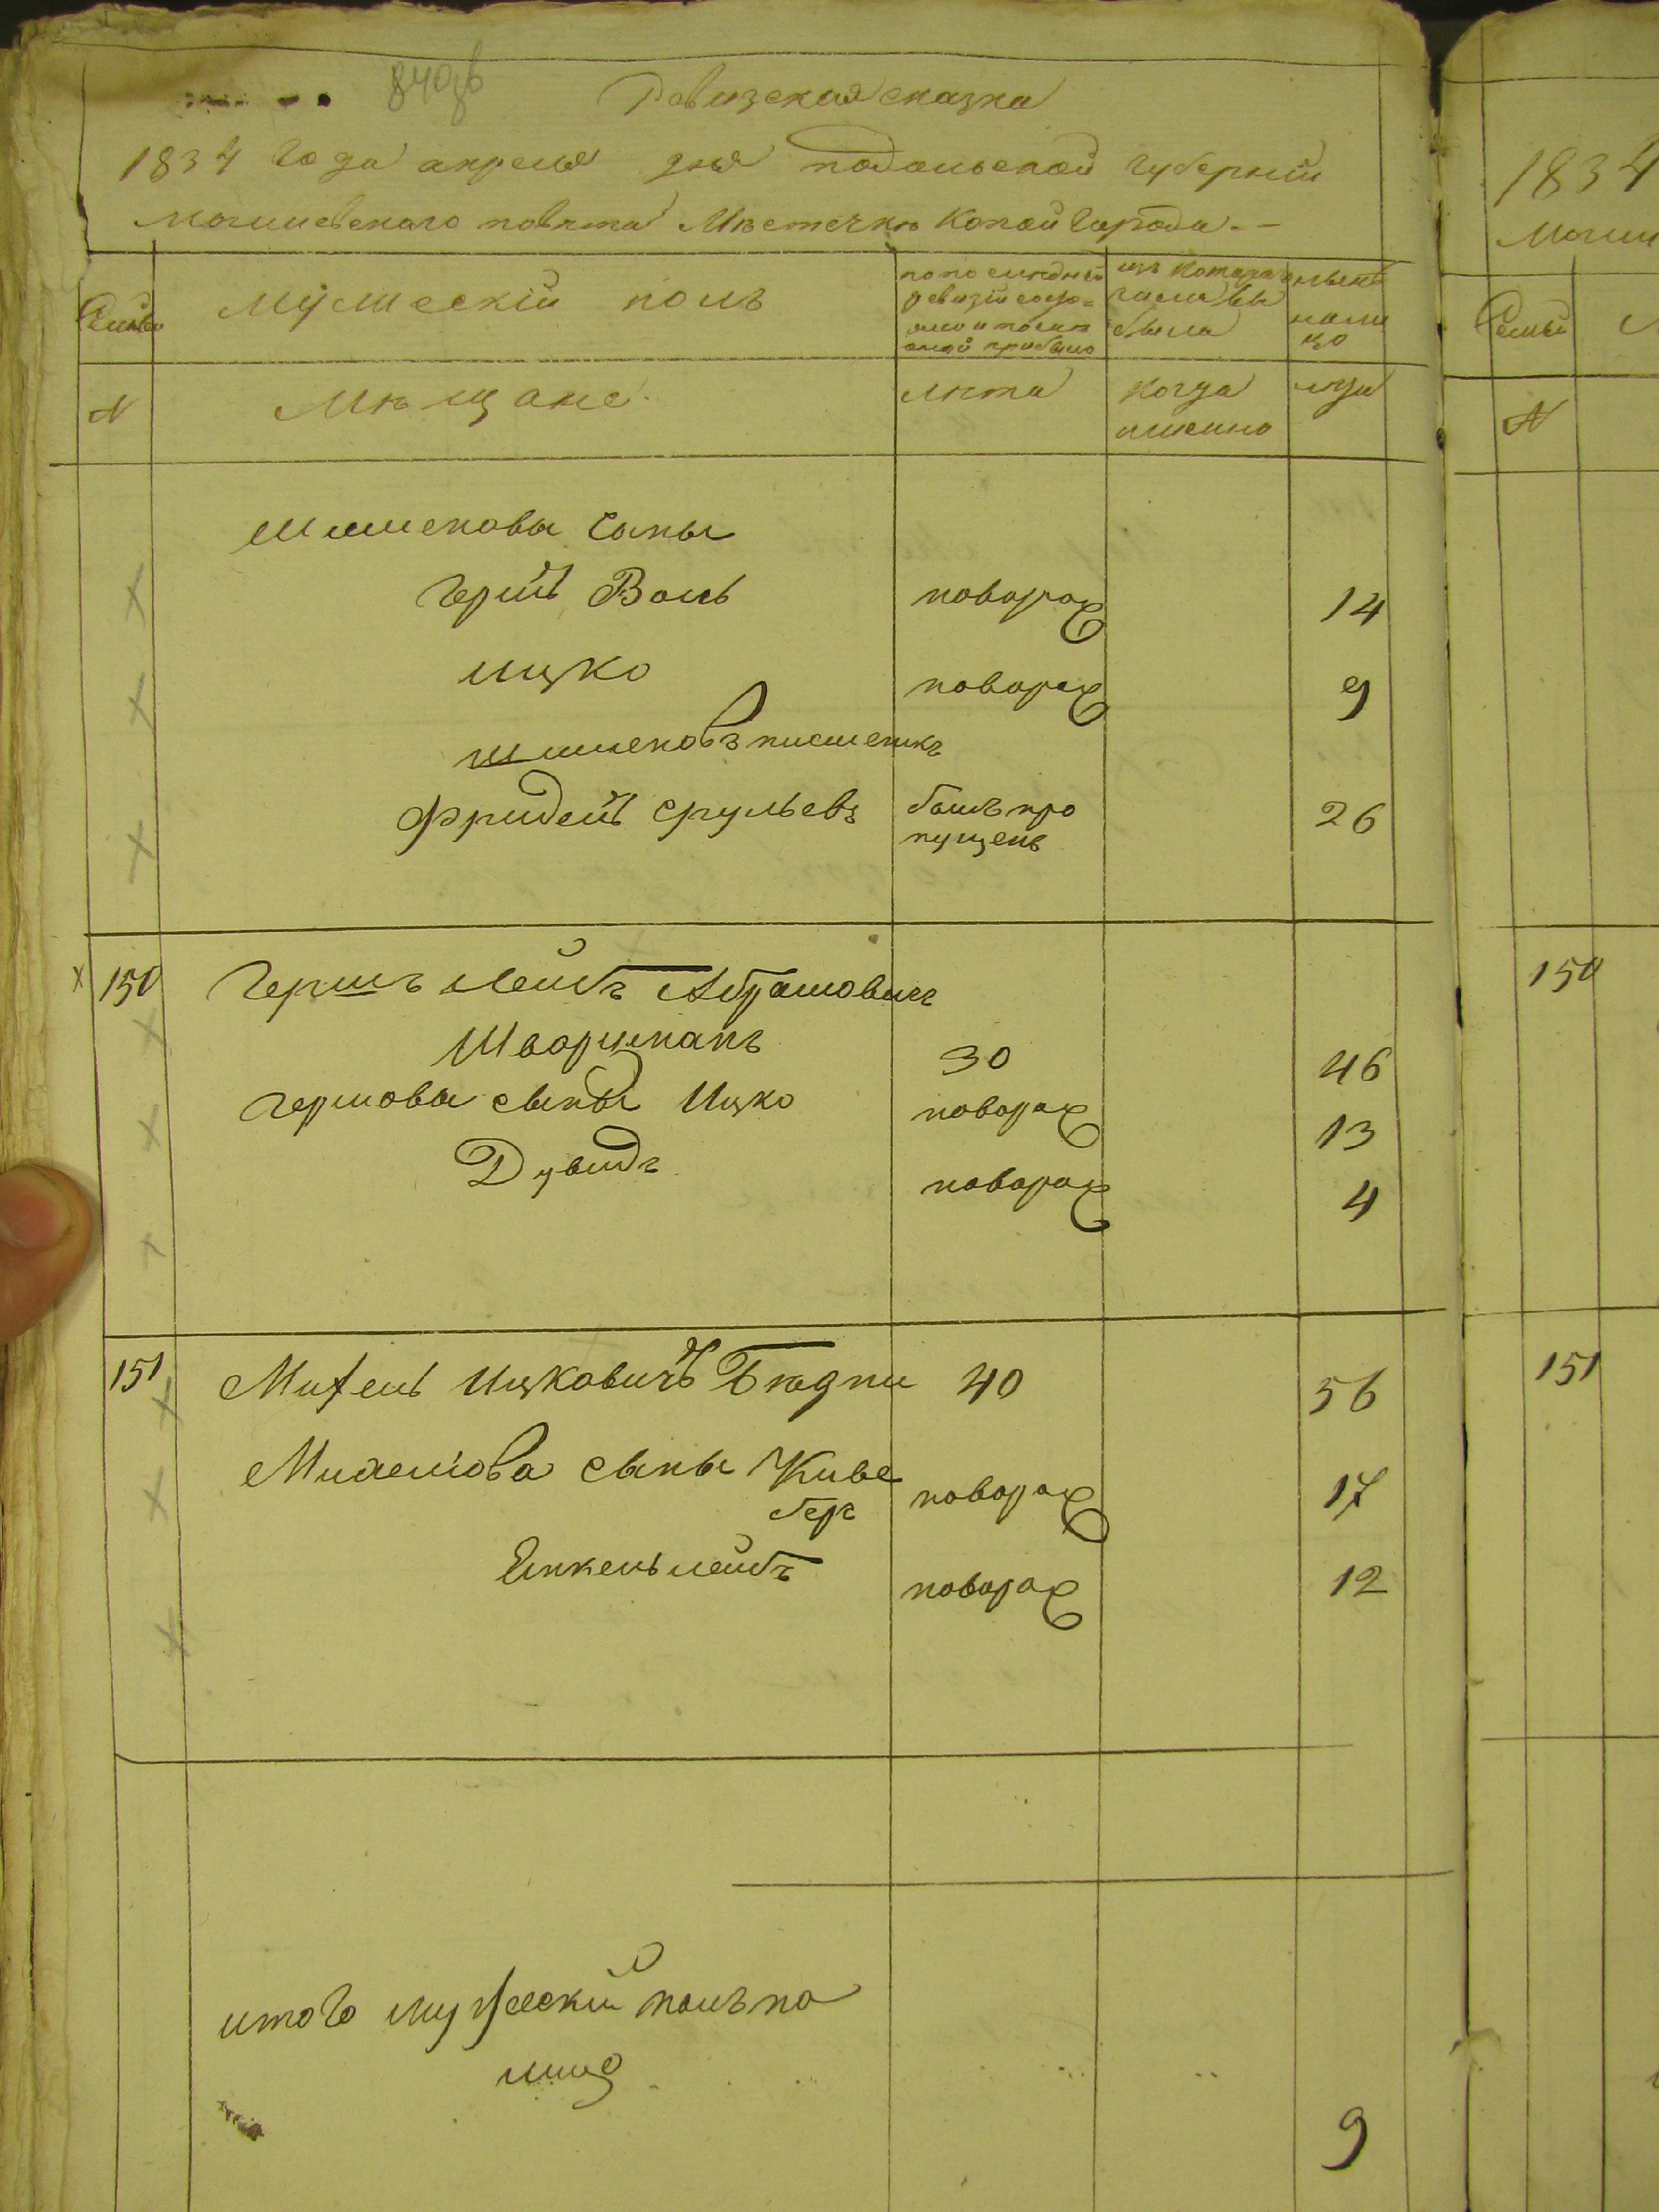 840об
Ревизская сказка
1834 года апреля дня подольской губернии
могилевского повета Мѣстечкѣ Копайгорода. -
Семьи
мужескій полъ
по последней ревизіи состояло и после оной прибыло
изъ котораго числа выбыло
ныне налицо
N
Мѣщане
лѣта
когда именно
лѣта
Шмілековы сыны
Герш Вольъ
новорож
14
ицко
новорож
9
Фридель срульевъ
былъ пропущенъ
26
150
Гершъ лейбъ Абрамовичъ
Шварцманъ
30
46
гершовы сыны Ицко
новорож
13
Дувидъ
новорож
4
151
Михель Ицковичъ
40
56
Михелюва сыны Киве
беръ
новорож
17
Янкель лейбъ
новорож
12
итого мужескій полъ на
лицо
9
1834
Семьи
N
150
151